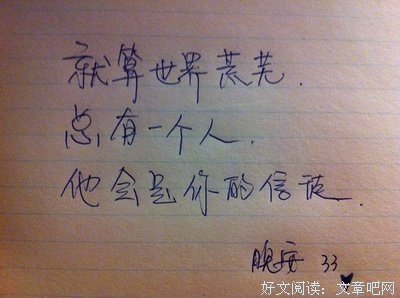 就算世界荒芜.
总有一个人.
他会是你的信徒.
晚安 33
好文阅读：文章吧网